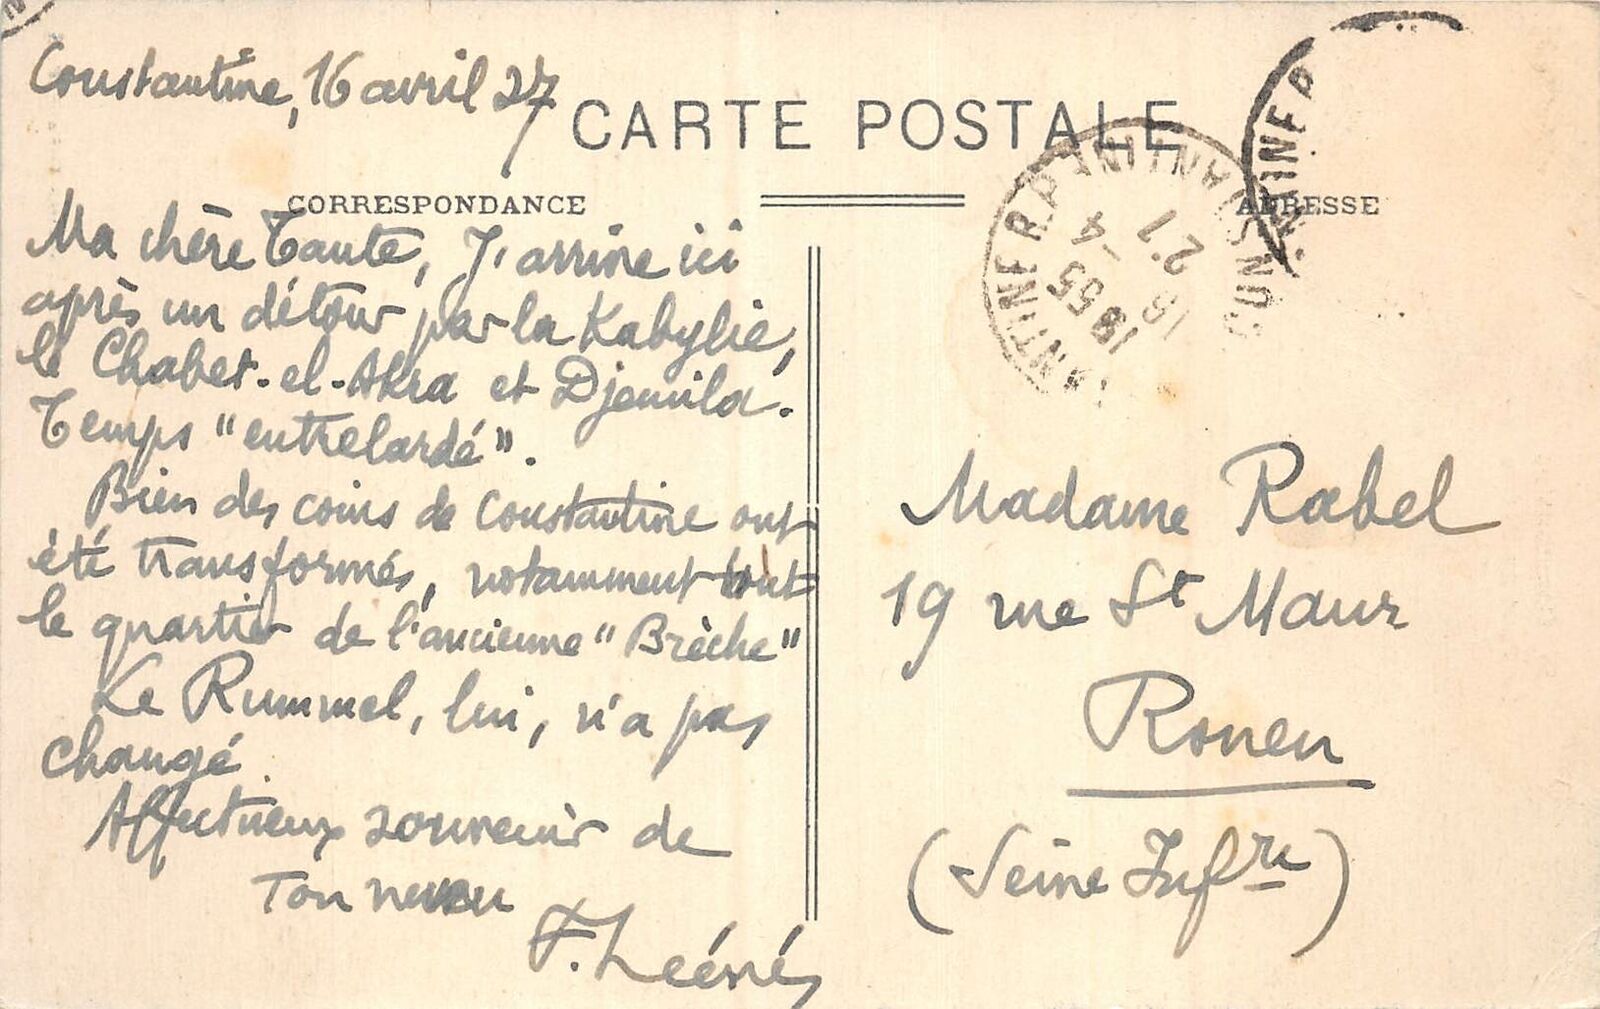 Constantine, 16 avril 27
CARTE POSTALE
CORRESPONDANCE
ADRESSE
Ma chère Tante, J'arrive ici
après un détour par la Kabylie,
le Chabet-el-Akra et Djemila.
Temps "entrelardé".
Bien des coins de Constantine ont
été transformés, notamment tout
le quartier de l'ancienne "Brèche"
Le Rummel, lui, n'a pas
changé
Affectueux souvenir de
Ton neveu
CONSTANTINE R.P.
1955
16 -4
27
Madame Rabel
19 rue St Maur
Rouen
(Seine Infre)